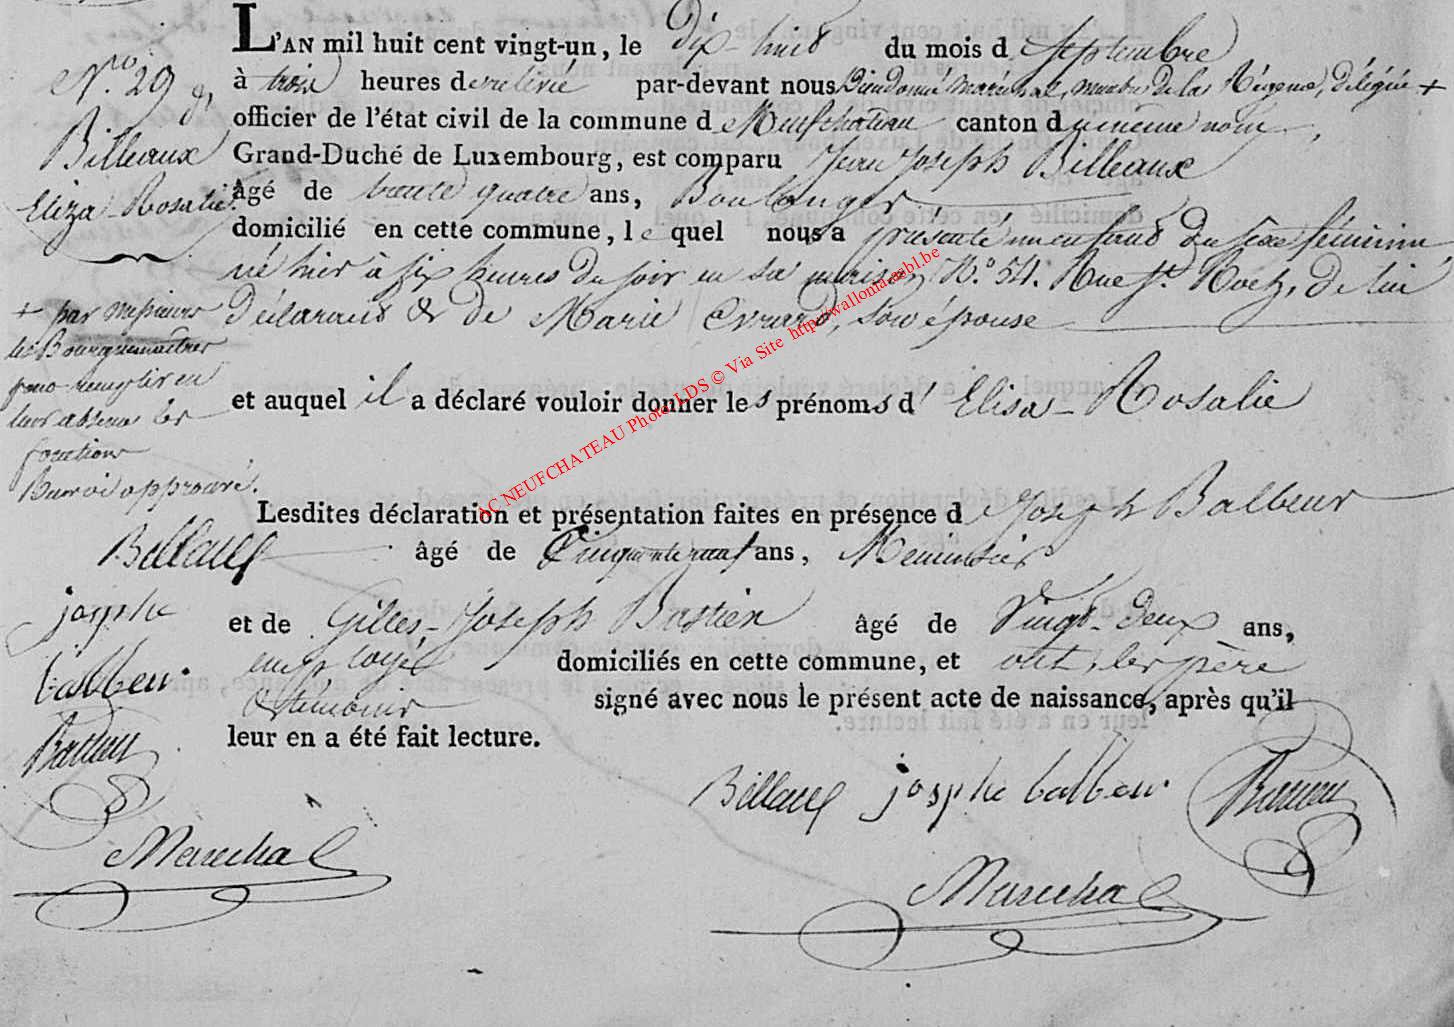 L'AN mil huit cent vingt-un, le Dix-huit du mois d Septembre
à trois heures de relevée par-devant nous Dieudonné Maréchal, membre de la Régence, délégué +
officier de l'état civil de la commune d Neufchateau canton du meme nom,
Grand-Duché de Luxembourg, est comparu Jean Joseph Billeaux
âgé de trente quatre ans, Boulanger
domicilié en cette commune, le quel nous a présenté un enfant du sexe féminin
né hier à six heures du soir en sa maison N.° 54. Rue St. Roch, de lui
déclarant & de Marie Evrard, son épouse
et auquel il a déclaré vouloir donner les prénoms d' Elisa-Rosalie
Lesdites déclaration et présentation faites en présence d Joseph Balbeur
âgé de Cinquante neuf ans, Menuisier
et de Gilles-Joseph Bastien âgé de Vingt-deux ans,
employé domiciliés en cette commune, et ont, les père
& témoins signé avec nous le présent acte de naissance, après qu'il
leur en a été fait lecture.
Billaux josephe balbeur Bastien
Marechal
N.ro 29
Billeaux
Eliza-Rosalie
+ par Messieurs
les Bourguemaitres
pour remplir en
leur absence les
fonctions
Renvoi approuvé.
Billaux
josephe
balbeur
Bastien
Marechal
AC NEUFCHATEAU Photo LDS © Via Site http://wallonia-asbl.be